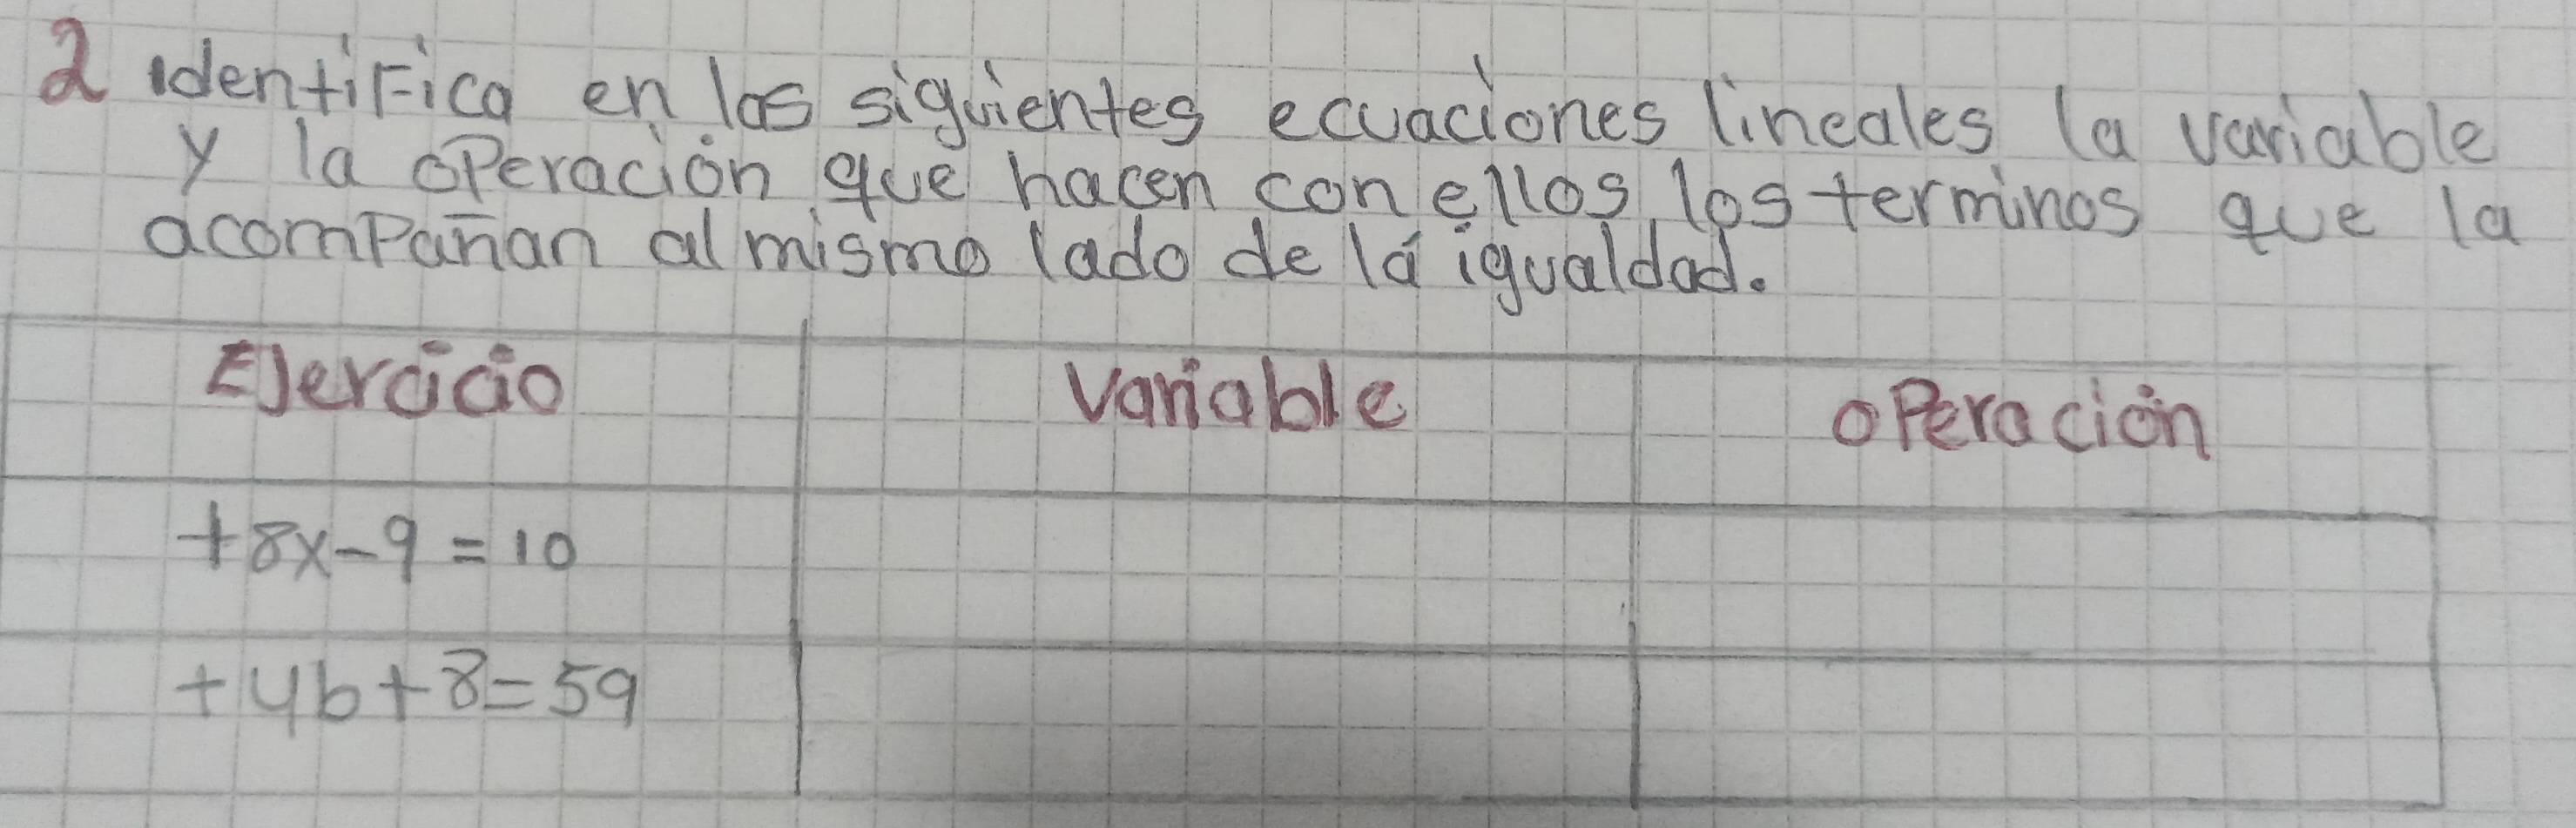 2 identifica en las siguientes ecuaciones lineales la variable
y la operación que hacen con ellos los terminos que la
acompañan al mismo lado de la igualdad.
Ejercicio Variable operación
+8x-9=10
+4b+8=59